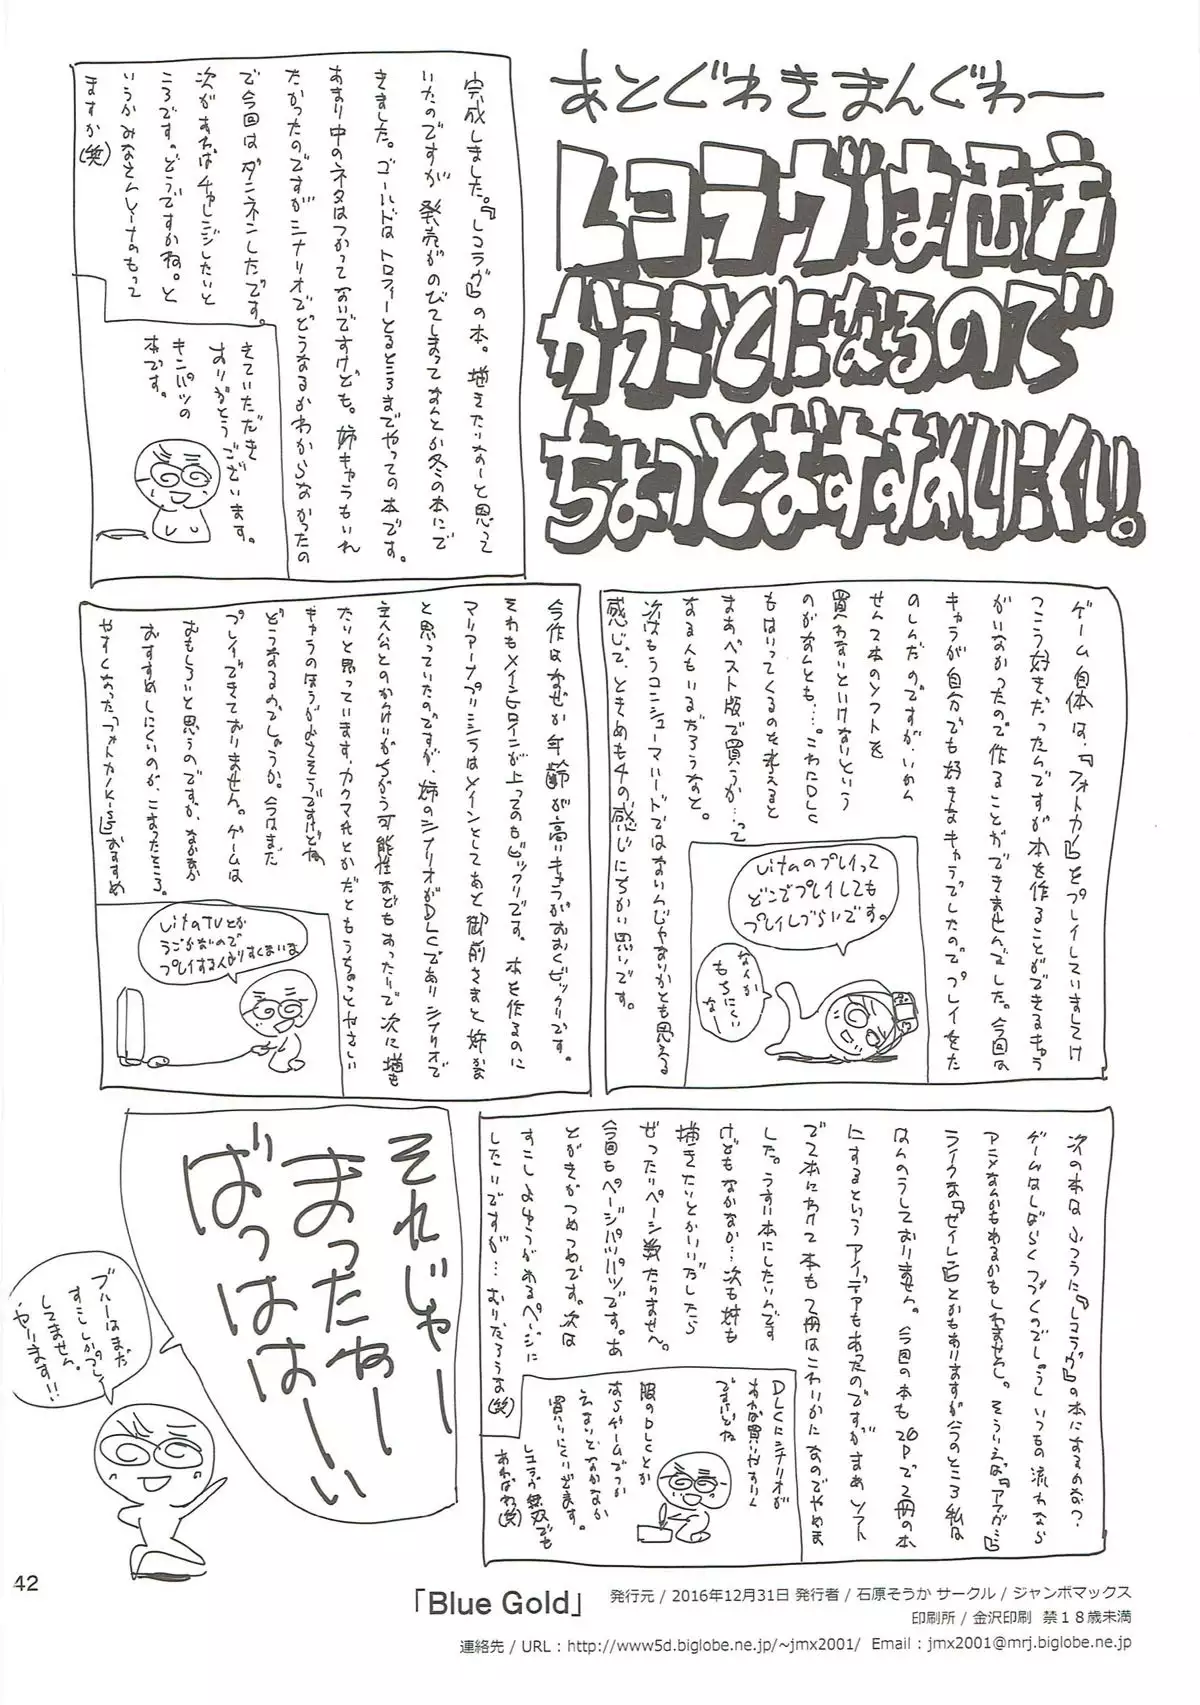 あとぐわきまんぐわー
レコラヴは両方
かうことになるので
ちょっとおすすめしにくい。
完成しました。『レコラヴ』の本。描きたいなーと思って
いたのですが発売がのびてしまってなんとか冬の本にで
きました。ゴールドはトロフィーとるところまでやっての本です。
あまり中のネタはつかってないですけども。姉キャラもいれ
たかったのですがシナリオでどうなるかわからなかったの
で今回はダンネンしたです。
次があればチャレンジしたいと
ころです。どうですかね。と
いうかみなさんレーナのもって
ますか(笑)
きていただき
ありがとうございます。
キンパツの
本です。
ゲーム自体は、『フォトカノ』をプレイしていましてけ
っこう好きだったんですが本を作ることができるキャラ
がいなかったので作ることができませんでした。今回は
キャラが自分でも好きなキャラでしたのでプレイをた
のしんだのですが、いかん
せん2本のソフトを
買わないといけないという
のがなんとも…。これにDLC
もはいってくるのを考えると
まあベスト版で買うか…って
なる人もいるだろうなと。
次はもうコンシューマハードではないんじゃないかとも思える
感じで、ときめも4の感じにちかい思いです。
Vitaのプレイって
どこでプレイしても
プレイしづらいです。
なんか
もちにくい
なー
今作はなぜか年齢が高いキャラがおおくビックリです。
それもメインヒロインが上ってのもビックリです。本を作るのに
マリアーナプリシラはメインとしてあと御前さまと姉かな
と思っていたのですが、姉のシナリオがDLCでありシナリオで
主人公とのかんけいがちがう可能性などもあったりで次に描も
たりと思っています、カクマれとかだともうちょっとやさしい
キャラのほうがよさそうですけどね
どうなるのでしょうか。今はまだ
プレイできておりません。ゲームは
おもしろいと思うのですが、なかなか
おすすめしにくいのが、こまったところ。
やすくなった『フォトカノKiss』おすすめ
VitaのTVとか
うごかないので
プレイする人がりすくまいよ
次の本はふつうに『レコラヴ』の本になるのかな?
ゲームはしばらくつづくのでしょうしいつもの流れなら
アニメなんかもあるかもしれませんし。そういえば『アマガミ』
ライクな『セイレン』とかもありますが今のところ私は
はんのうしておりません。今回の本も20Pで2冊の本
にするというアイデアもあったのですがまあソフト
でて本にわけて本も2冊はこわいかになのでやめま
した。うすい本にしたいんです
けどもなかなか…次も姉も
描きたいとかいいだしたら
ぜったいページ数たりません。
今回もページパツパツです。あ
とがきかつめつめです。次は
すこしよゆうがあるページに
したいですが…むりだろうな(笑)
DLCにシナリオが
あれば買いやすいく
ですけどね
服のDLCとか
ならゲームでつか
えないとなかなか
買いにくいどます。
レコラヴ無双でも
あればねぇ(笑)
それじゃー
まったねー
ばっははーい
ブルーはまだ
すこししかプレイ
してません。
やります!!
42
「Blue Gold」
発行元 / 2016年12月31日 発行者 / 石原そうか サークル / ジャンボマックス
印刷所 / 金沢印刷 禁18歳未満
連絡先 / URL : http://www5d.biglobe.ne.jp/~jmx2001/ Email : jmx2001@mrj.biglobe.ne.jp